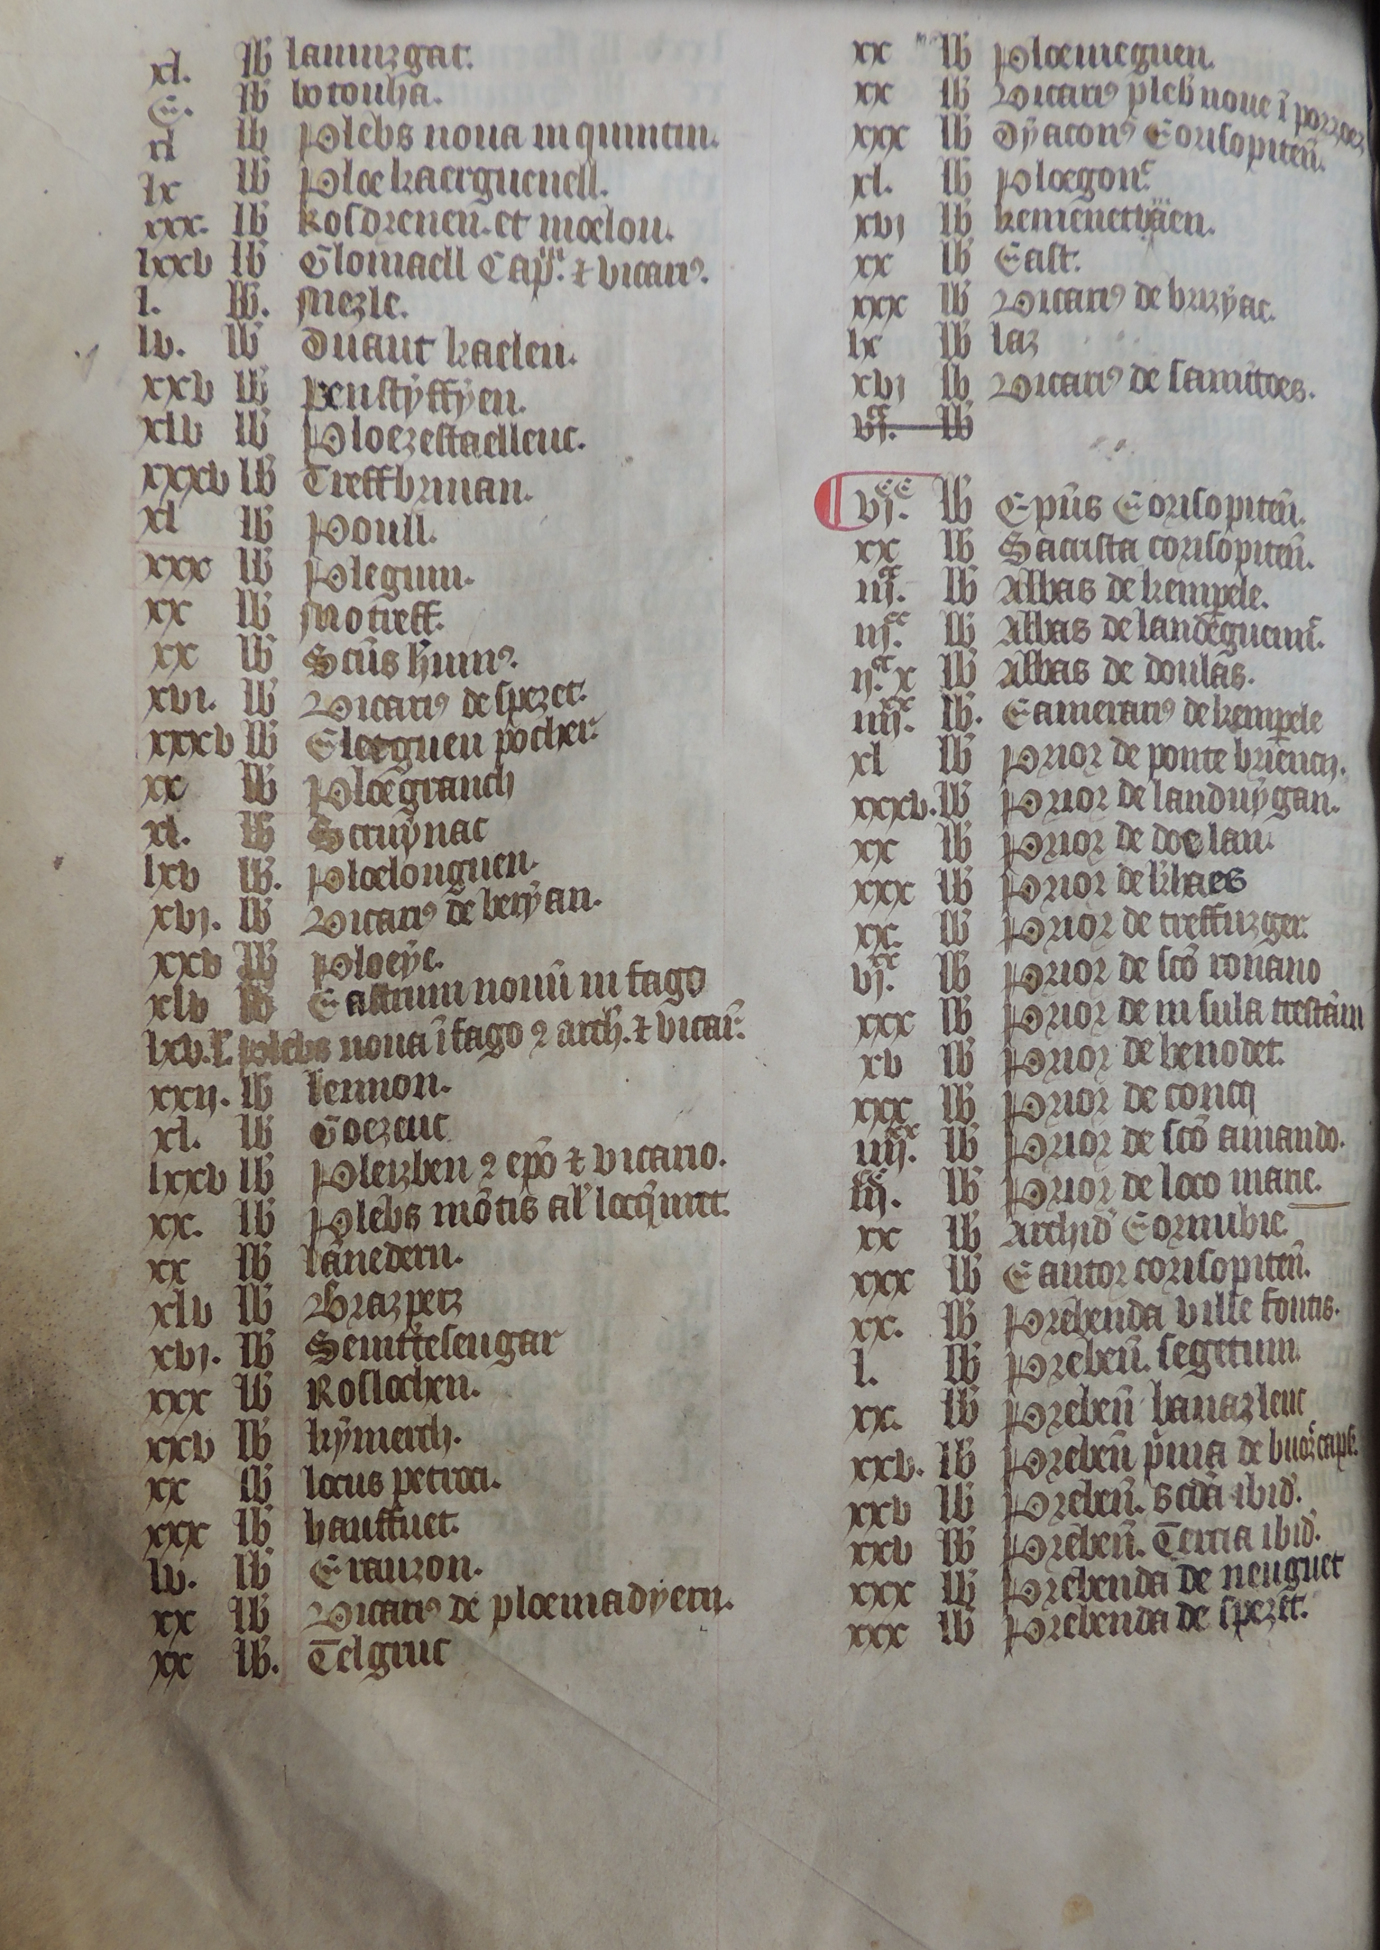 xl. lb lanuizgat.
C. lb botouha.
xl lb Plebs noua in quintin.
lx lb Ploe kaerguenell.
xxx. lb Rosdrenen. et moelou.
lxxv lb Glomaell Cap. ⁊ vicariꝰ.
l. lb. Mezle.
lv. lb Duaut kaelen.
xxv lb Penstyffyen.
xlv lb Ploezestaelleuc.
xxxv lb Treffbriuan.
xl lb Poull.
xxx lb Ploguin.
xx lb Motreff.
xx lb Sc̄us h̄uinꝰ.
xvi. lb Vicariꝰ de spezet.
xxxv lb Cletguen pocher.
xx lb Ploegranch
xl. lb Scruynac
lxv lb. Ploelonguen.
xvj. lb Vicariꝰ de beryan.
xxv lb Ploeye.
xlv lb Castrum nouū in fago
lxv. l. plebs noua ī fago ꝯ arch. ⁊ vicar.
xxij. lb lennon.
xl. lb Goezeuc
lxxv lb Pleizben ꝯ ep̄o ⁊ vicario.
xx. lb Plebs mōtis al' locq̄nuit.
xx lb lānedern.
xlv lb Brazpetz
xvj. lb Semttesengar
xxx lb Roslochen.
xxv lb kymerch.
xx lb locus petroci.
xxx lb hanffuet.
lv. lb Crauzon.
xx lb Vicariꝰ de ploemadyern.
xx lb. Telgruc
xx lb Ploemeguen.
xx lb Vicariꝰ pleb noue ī porzoez
xxx lb Dyaconꝰ Corisopiten̄.
xl. lb Ploegon.
xvj lb kemenetmaen.
xx lb Cast.
xxx lb Vicariꝰ de briziac.
lx lb laz
xvj lb Vicariꝰ de samtoes.
vj. lb
vj.ᶜᶜ lb Ep̄us Corisopiten̄.
xx lb Sacrista corisopiten̄.
iij.ᶜ lb Abbas de kemp̄ele.
iij.ᶜᶜ lb Abbas de landēguenn.
ij.ᶜ x lb Abbas de doulas.
iiij.ˣˣ lb. Camerariꝰ de kemp̄ele
xl lb Prior de ponte briencij.
xxxv. lb Prior de landuygan.
xx lb Prior de doelan.
xxx lb Prior de k̄haes
xx. lb Prior de treffuzger.
vj.ˣˣ lb Prior de sc̄o ronano
xxx lb Prior de insula trestāni
xv lb Prior de benodet.
xxx lb Prior de concq
iiij.ˣˣ lb Prior de sc̄o amando.
iij.ᶜᶜ lb Prior de loco marie.
xx lb Archid' Cornubie
xxx lb Cantor corisopiten̄.
xx. lb Prebenda ville fontis.
l. lb Preben̄. segetum.
xx. lb Preben̄ banazleuc
xxv. lb Preben̄ p̄ma de buor caps.
xxv lb Preben̄. scd̄a ibid'.
xxv lb Preben̄. Tercia ibid'.
xxx lb Prebenda de neuguet
xxx lb Prebenda de spezet.